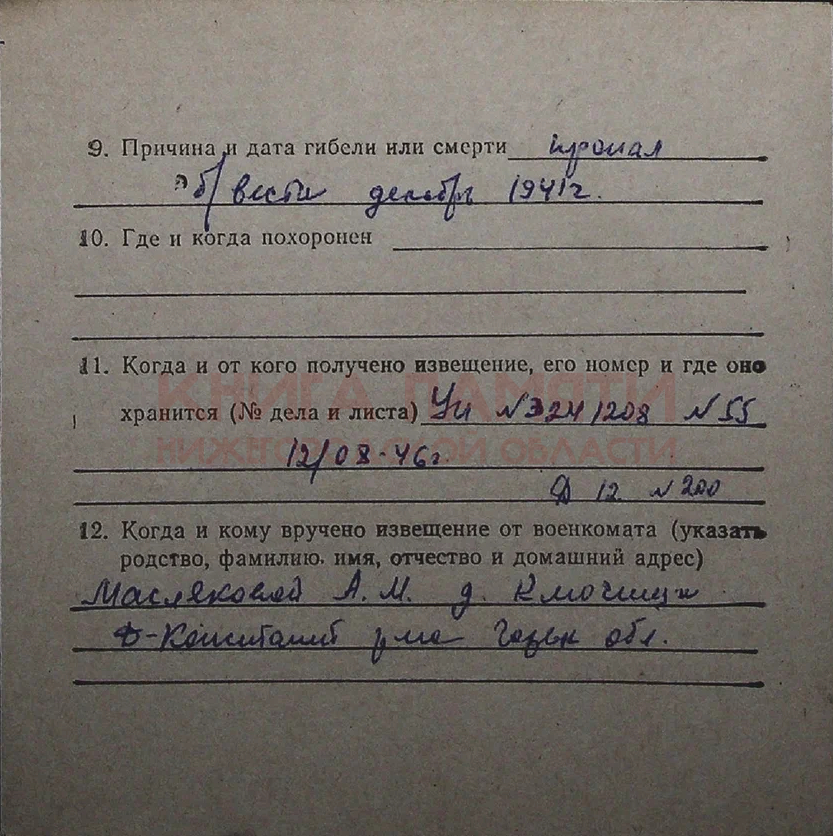 9. Причина и дата гибели или смерти пропал
б/вести декабрь 1941г.
10. Где и когда похоронен
11. Когда и от кого получено извещение, его номер и где оно
КНИГА ПАМЯТИ
хранится (№ дела и листа) N3241208 N55
НИЖЕГОРОДСКОЙ ОБЛАСТИ
12/08-46г.
Д 12 N200
12. Когда и кому вручено извещение от военкомата (указать
родство, фамилию. имя, отчество и домашний адрес)
Масляковой А. М. д. Ключищи
Д-Констант р-на Горьк обл.